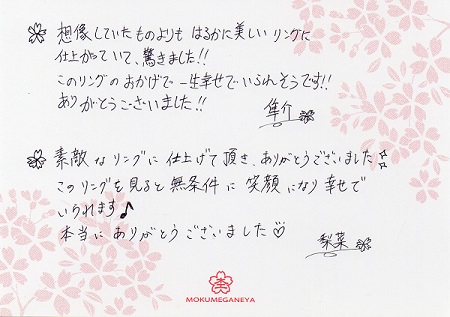 想像していたものよりも はるかに美しい リングに
仕上がっていて、驚きました!!
このリングのおかげで一生幸せでいられそうです!!
ありがとうございました!!
隼介
素敵なリングに仕上げて頂き、ありがとうございました
このリングを見ると無条件に笑顔になり幸せで
いられます♪
本当にありがとうございました♡
梨菜
MOKUMEGANEYA